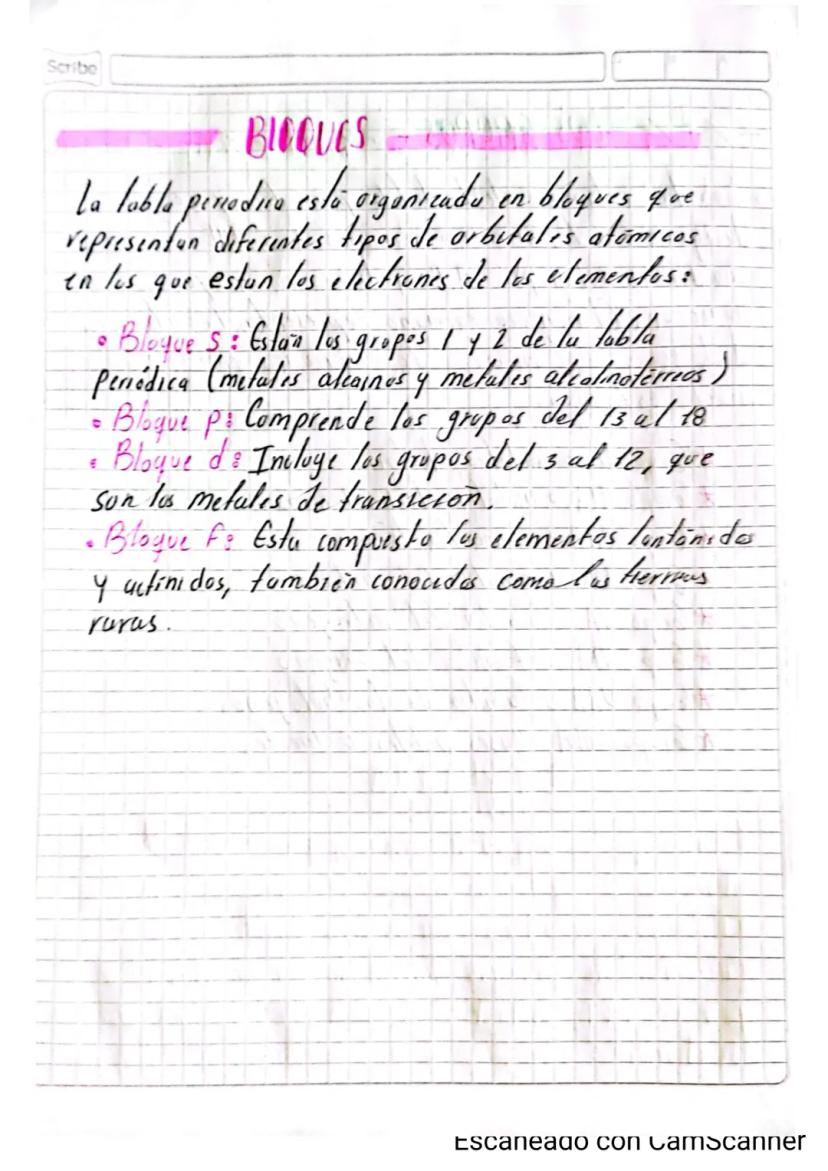 Scribe
BLOQUES
La tabla periodica está organizada en bloques que
representan diferentes tipos de orbitales atómicos
en los que estan los electrones de los elementos:
• Bloque s: Están los grupos 1 y 2 de la tabla
periódica (metales alcainos y metales alcalinotérreos)
• Bloque p: Comprende los grupos del 13 al 18
• Bloque d: Incluye los grupos del 3 al 12, que
son los metales de transición.
• Bloque f: Esta compuesto los elementos lantánidos
y actinidos, también conocidos como las tierras
raras.
Escaneado con CamScanner